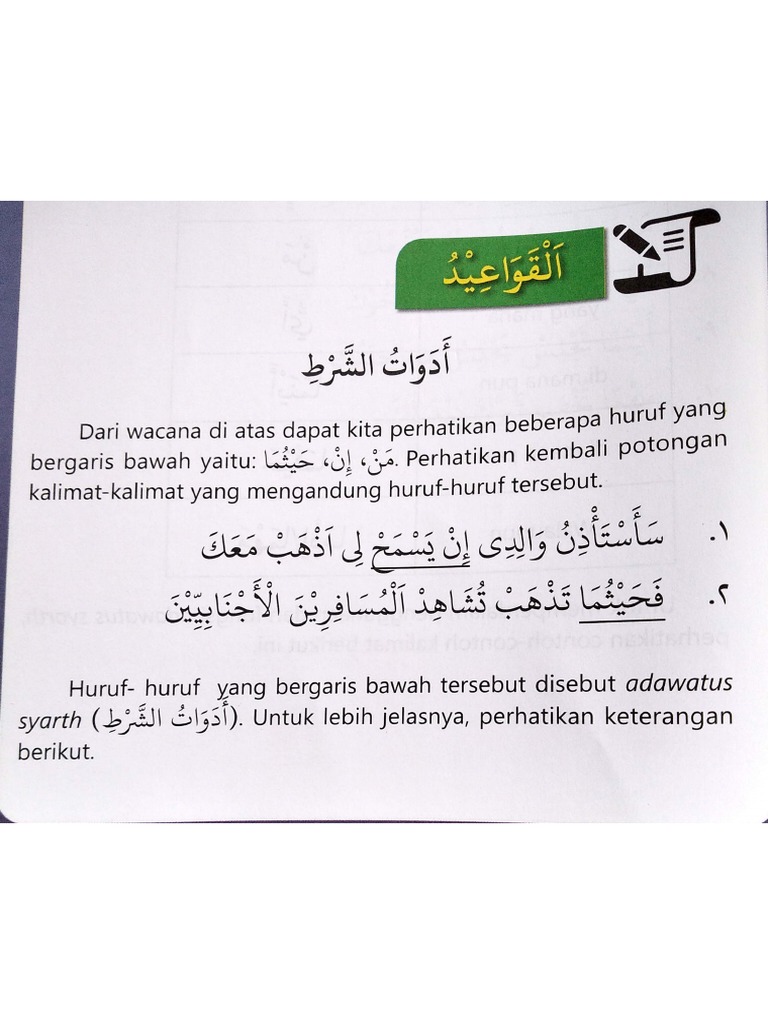 اَلْقَوَاعِيْدُ
أَدَوَاتُ الشَّرْطِ
Dari wacana di atas dapat kita perhatikan beberapa huruf yang
bergaris bawah yaitu: مَنْ، إِنْ، حَيْثُمَا. Perhatikan kembali potongan
kalimat-kalimat yang mengandung huruf-huruf tersebut.
١. سَأَسْتَأْذِنُ وَالِدِى إِنْ يَسْمَحْ لِى اَذْهَبْ مَعَكَ
٢. فَحَيْثُمَا تَذْهَبْ تُشَاهِدْ اَلْمُسَافِرِيْنَ الْأَجْنَابِيِّيْنَ
Huruf- huruf yang bergaris bawah tersebut disebut adawatus
syarth (أَدَوَاتُ الشَّرْطِ). Untuk lebih jelasnya, perhatikan keterangan
berikut.